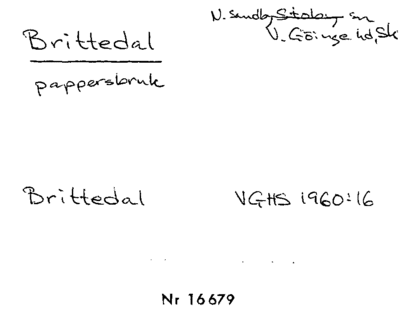 N. Sandby Stoby sn
V. Göinge hd, Sk
Brittedal
pappersbruk
Brittedal VGHS 1960:16
Nr 16679